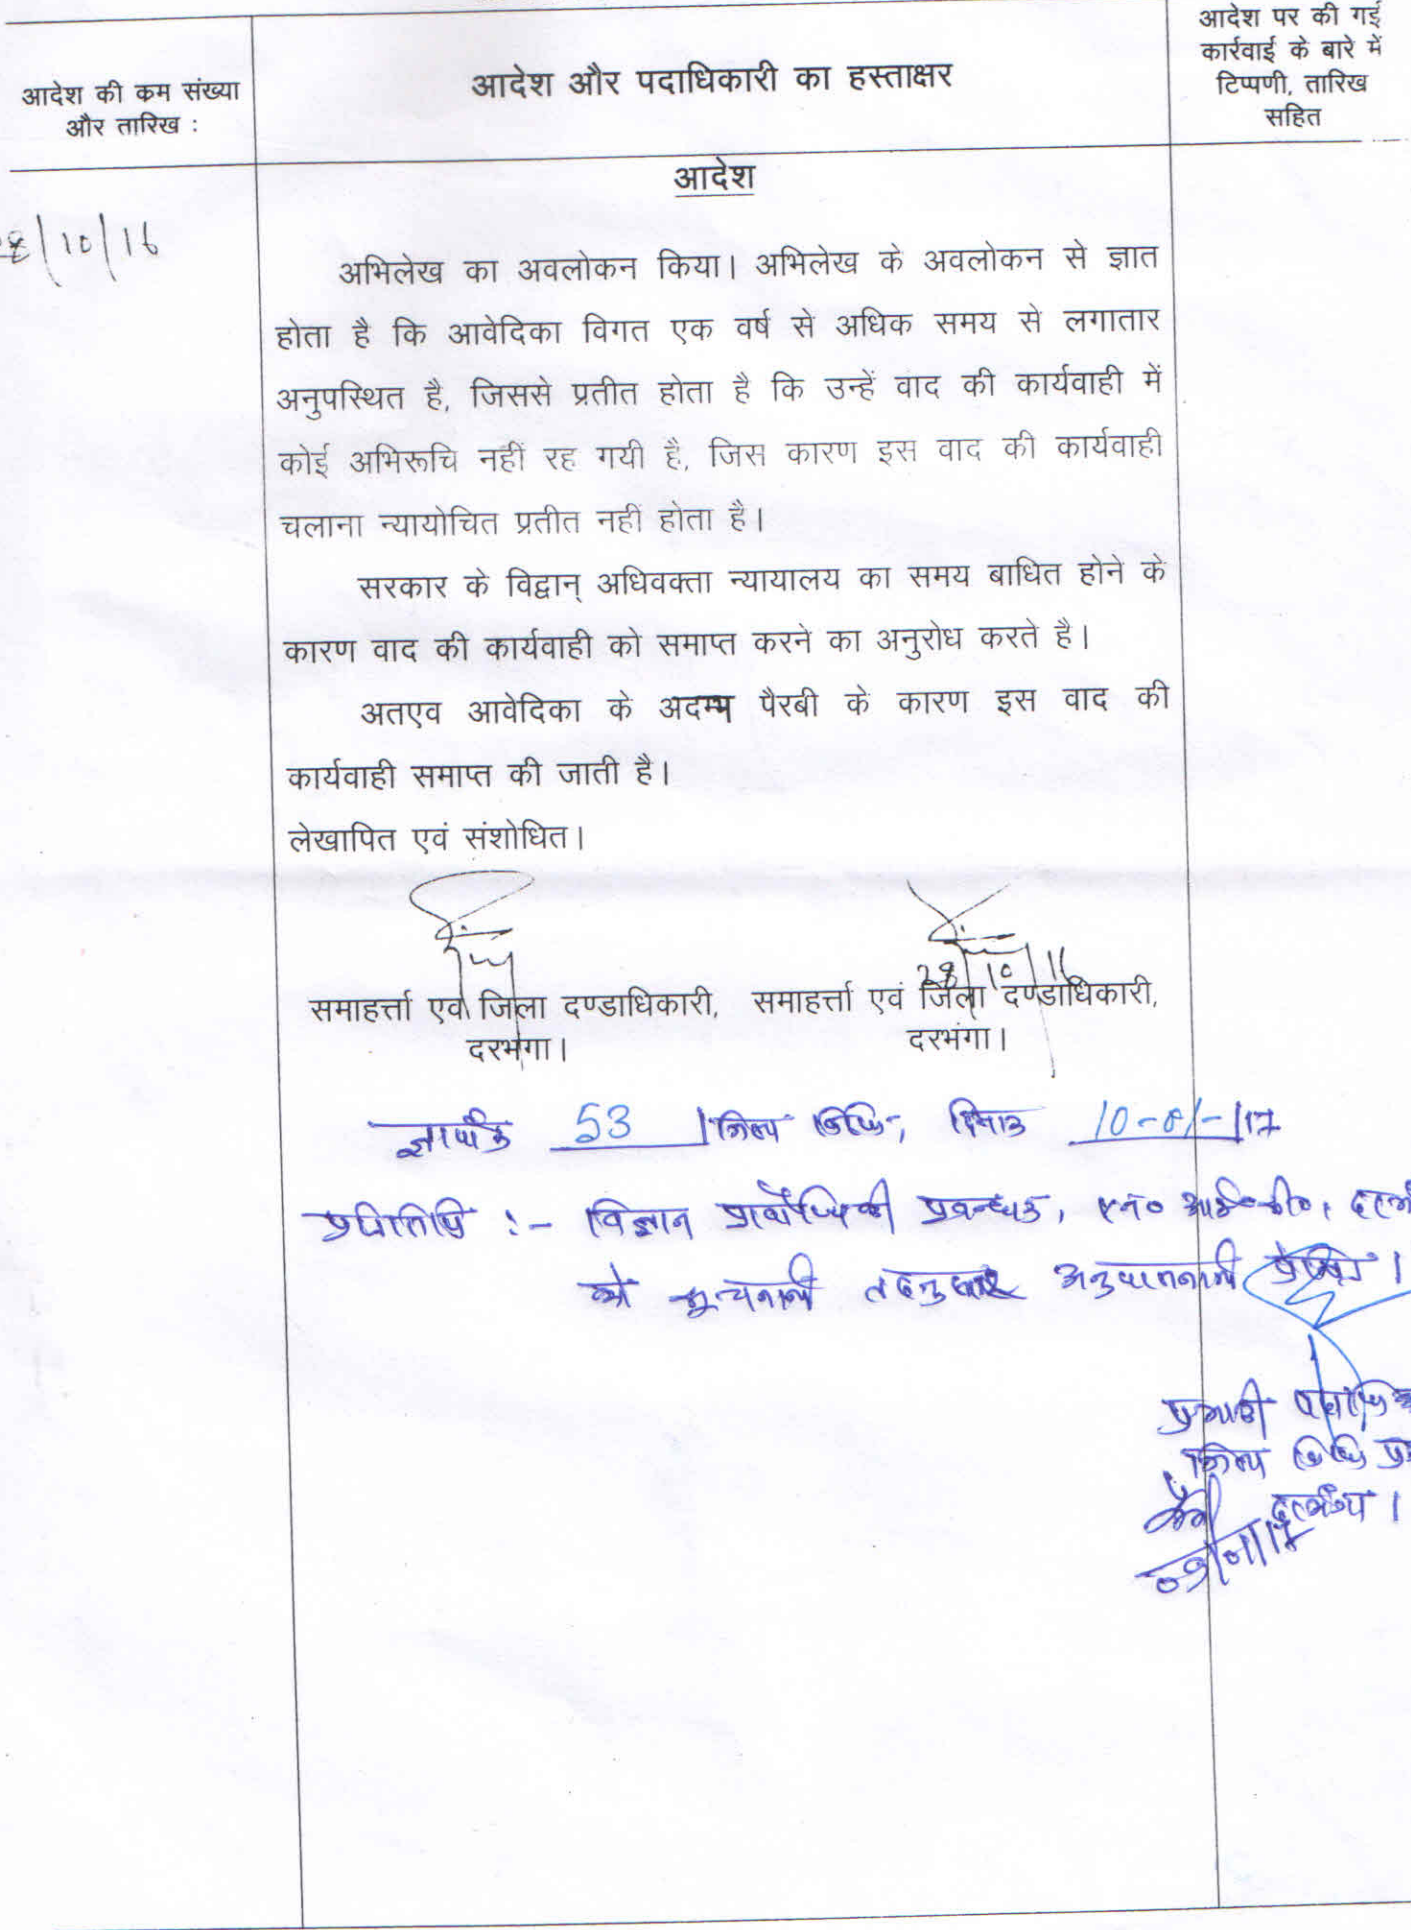 आदेश की कम संख्या
और तारिख :
आदेश और पदाधिकारी का हस्ताक्षर
आदेश पर की गई
कार्रवाई के बारे में
टिप्पणी, तारिख
सहित
आदेश
28/10/16
अभिलेख का अवलोकन किया। अभिलेख के अवलोकन से ज्ञात
होता है कि आवेदिका विगत एक वर्ष से अधिक समय से लगातार
अनुपस्थित है, जिससे प्रतीत होता है कि उन्हें वाद की कार्यवाही में
कोई अभिरूचि नहीं रह गयी है, जिस कारण इस वाद की कार्यवाही
चलाना न्यायोचित प्रतीत नहीं होता है।
सरकार के विद्वान् अधिवक्ता न्यायालय का समय बाधित होने के
कारण वाद की कार्यवाही को समाप्त करने का अनुरोध करते है।
अतएव आवेदिका के अदम्य पैरबी के कारण इस वाद की
कार्यवाही समाप्त की जाती है।
लेखापित एवं संशोधित।
28/10/16
समाहर्त्ता एवं जिला दण्डाधिकारी, समाहर्त्ता एवं जिला दण्डाधिकारी,
दरभंगा। दरभंगा।
ज्ञापांक 53 /जिला विधि, दिनांक 10-01-/17
प्रतिलिपि :- विज्ञान प्रावैधिकी प्रबन्धक, एन० आई० सी०,
को सूचनार्थ तदनुसार अनुपालनार्थ प्रेषित।
प्रभारी
जिला विधि
दरभंगा।